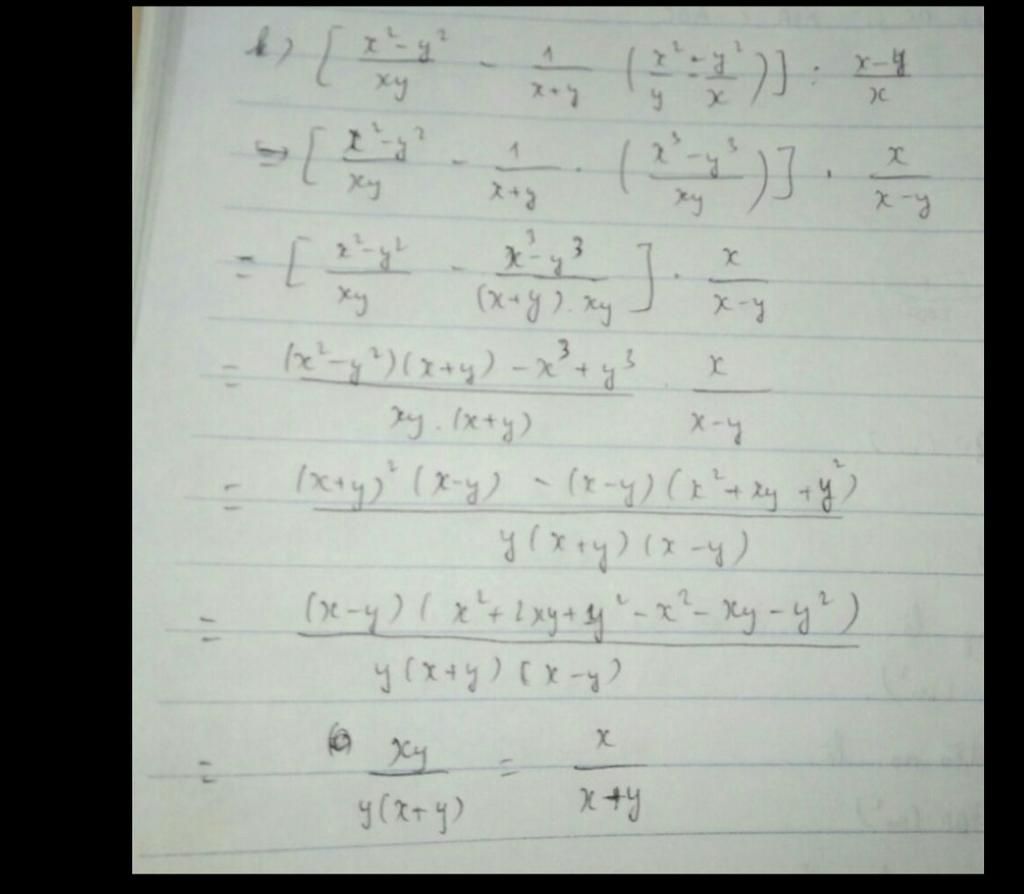 b) [ (x² - y²)/(xy) - 1/(x+y) (x²/y - y²/x) ] : (x-y)/x
= [ (x² - y²)/(xy) - 1/(x+y) . ( (x³ - y³)/(xy) ) ] . x/(x-y)
= [ (x² - y²)/(xy) - (x³ - y³)/((x+y).xy) ] . x/(x-y)
= ((x² - y²)(x+y) - x³ + y³)/(xy.(x+y)) . x/(x-y)
= ((x+y)²(x-y) - (x-y)(x² + xy + y²))/(y(x+y)(x-y))
= ((x-y)(x² + 2xy + y² - x² - xy - y²))/(y(x+y)(x-y))
= xy/(y(x+y)) = x/(x+y)